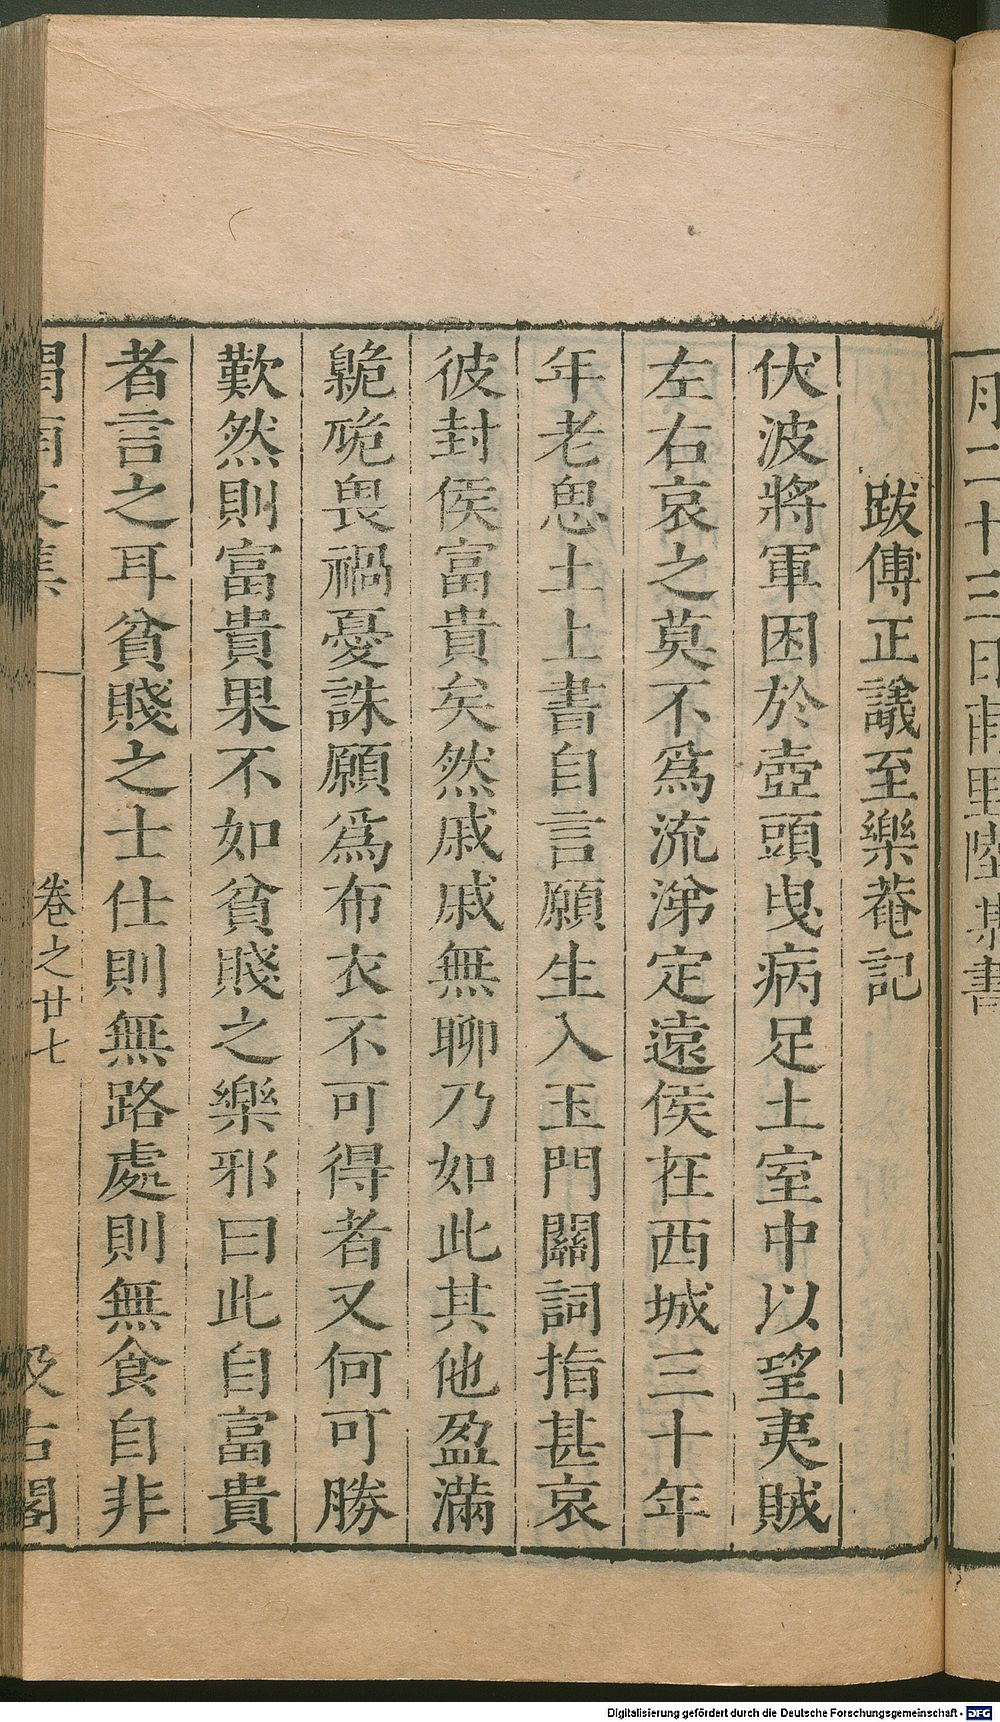 月二十三日甫里陸某書
跋傅正議至樂菴記
伏波將軍困於壺頭曳病足土室中以望夷賊
左右哀之莫不爲流涕定遠侯在西域三十年
年老思土上書自言願生入玉門關詞指甚哀
彼封侯富貴矣然戚戚無聊乃如此其他盈滿
臲卼畏禍憂誅願爲布衣不可得者又何可勝
歎然則富貴果不如貧賤之樂邪曰此自富貴
者言之耳貧賤之士仕則無路處則無食自非
渭南文集 卷之廿七 汲古閣
Digitalisierung gefördert durch die Deutsche Forschungsgemeinschaft - DFG